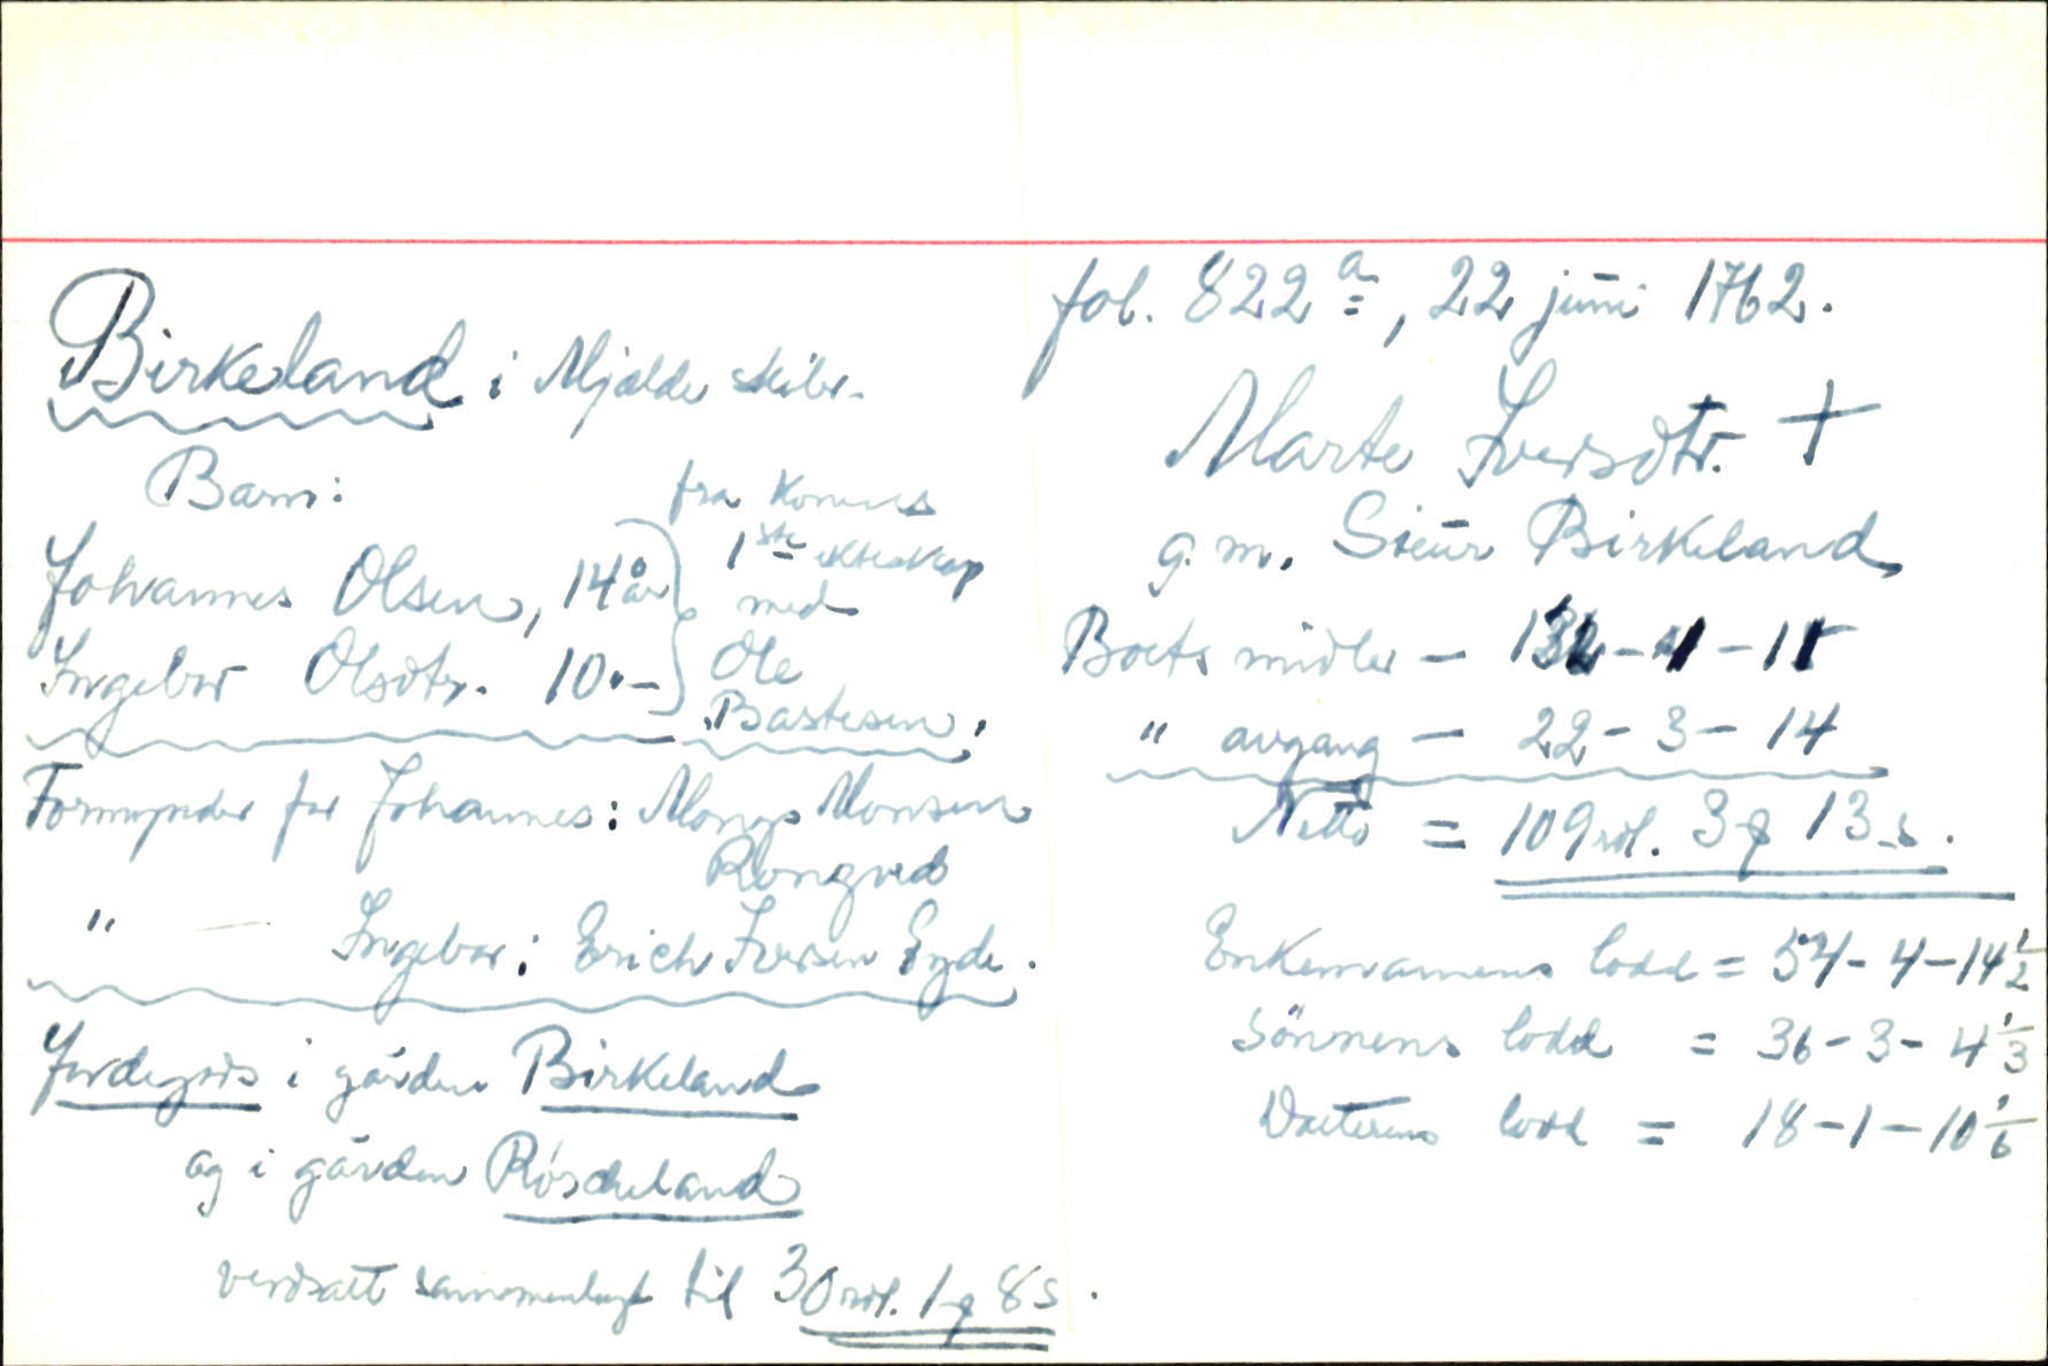 Birkeland i Mjelde skibr.
Barn:
Johannes Olsen, 14 år
Ingebor Olsdtr. 10 " –
fra konens
1ste ekteskap
med
Ole
Bastesen.
Formynder for Johannes: Mons Monsen
Rongved
" — Ingebor: Erich Iversen Eyde.
Jordegods i gården Birkeland
og i gården Röscheland
verdsatt sammenlagt til 30 rdl. 1 q 8 s.
fol. 822 a, 22 juni 1762.
Marte Iversdtr. +
g. m. Sieur Birkeland
Boets midler – 132 – 1 – 11
" avgang – 22 – 3 – 14
Netto = 109 rdl. 3 q 13 s.
Enkemannens lodd = 54 – 4 – 14 1/2
Sönnens lodd = 36 – 3 – 4 1/3
Datterens lodd = 18 – 1 – 10 1/6